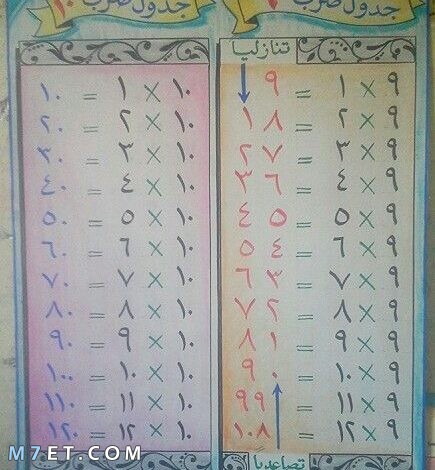 جدول ضرب
تنازليا
٩ × ١ = ٩
٩ × ٢ = ١٨
٩ × ٣ = ٢٧
٩ × ٤ = ٣٦
٩ × ٥ = ٤٥
٩ × ٦ = ٥٤
٩ × ٧ = ٦٣
٩ × ٨ = ٧٢
٩ × ٩ = ٨١
٩ × ١٠ = ٩٠
٩ × ١١ = ٩٩
٩ × ١٢ = ١٠٨
تصاعديا
جدول ضرب ١٠
١٠ × ١ = ١٠
١٠ × ٢ = ٢٠
١٠ × ٣ = ٣٠
١٠ × ٤ = ٤٠
١٠ × ٥ = ٥٠
١٠ × ٦ = ٦٠
١٠ × ٧ = ٧٠
١٠ × ٨ = ٨٠
١٠ × ٩ = ٩٠
١٠ × ١٠ = ١٠٠
١٠ × ١١ = ١١٠
١٠ × ١٢ = ١٢٠
M7ET.COM